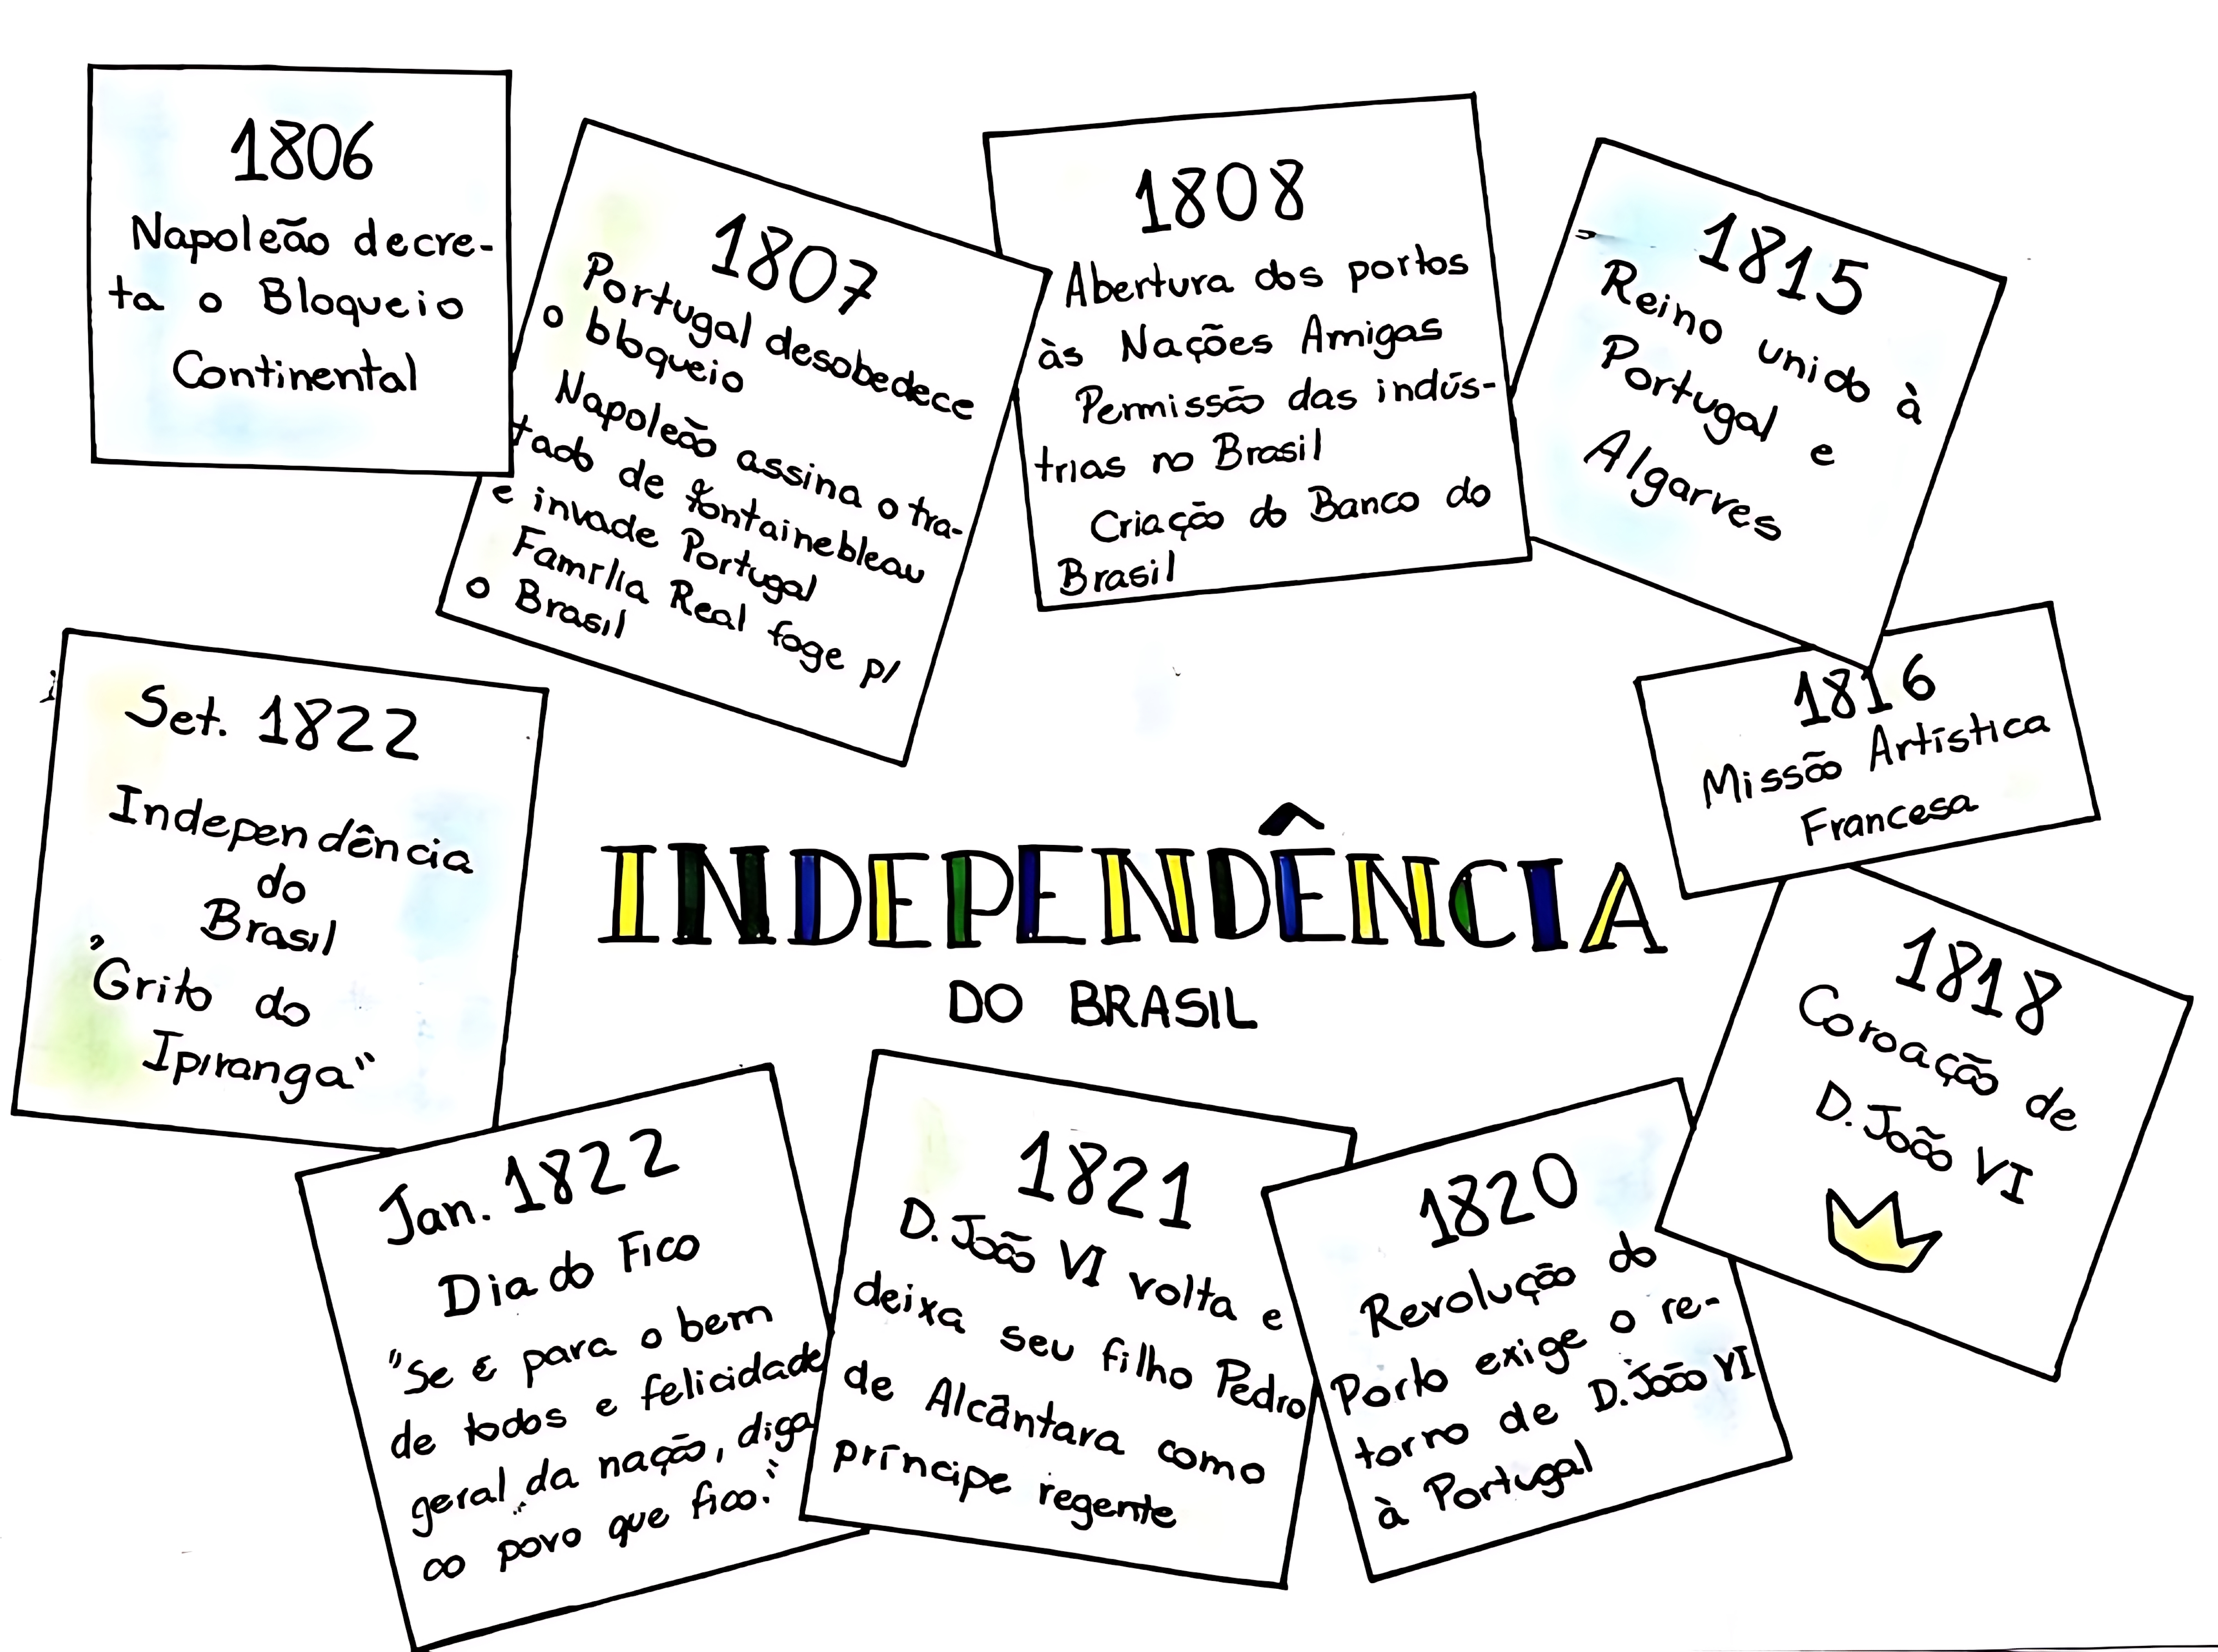 1806
Napoleão decre-
ta o Bloqueio
Continental
1807
Portugal desobedece
o bloqueio
Napoleão assina o tra-
tado de fontainebleau
e invade Portugal
Família Real foge p/
o Brasil
1808
Abertura dos portos
às Nações Amigas
Permissão das indús-
trias no Brasil
Criação do Banco do
Brasil
1815
Reino unido à
Portugal e
Algarves
1816
Missão Artística
Francesa
1818
Coroação de
D. João VI
1820
Revolução do
Porto exige o re-
torno de D. João VI
à Portugal
1821
D. João VI volta e
deixa seu filho Pedro
de Alcântara como
príncipe regente
Jan. 1822
Dia do Fico
"Se é para o bem
de todos e felicidade
geral da nação, diga
ao povo que fico."
Set. 1822
Independência
do
Brasil
"Grito do
Ipiranga"
INDEPENDÊNCIA
DO BRASIL